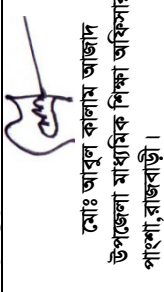 মোঃ আবুল কালাম আজাদ
উপজেলা মাধ্যমিক শিক্ষা অফিসার
পাংশা,রাজবাড়ী।